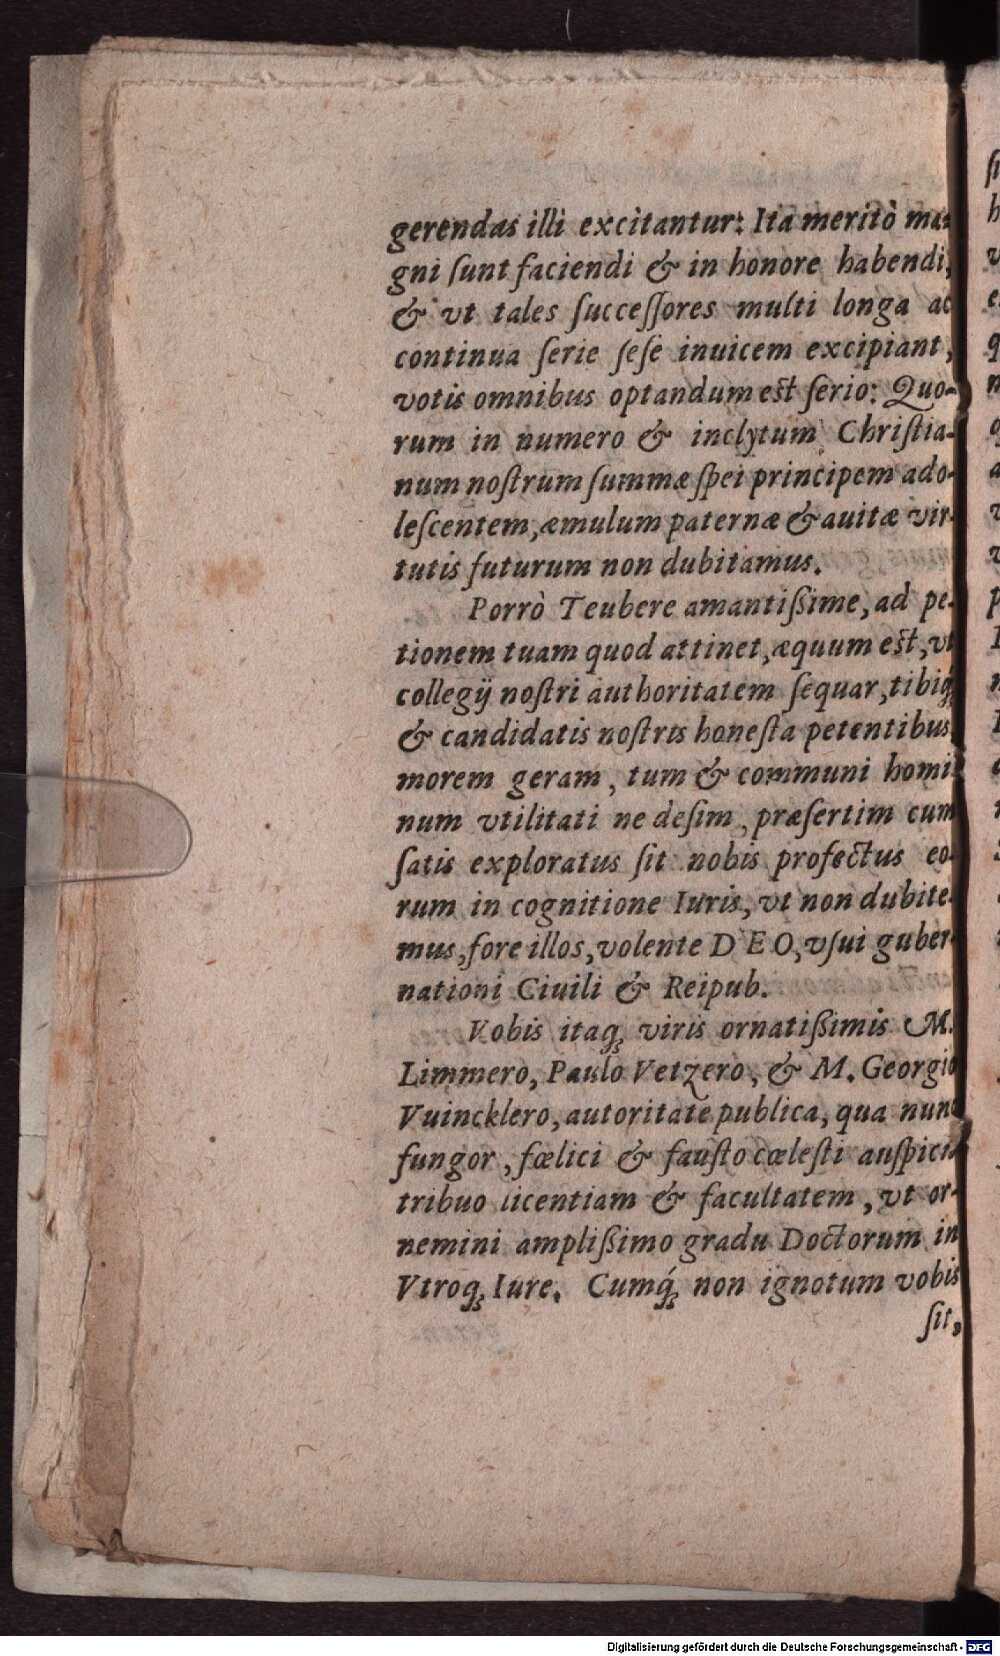 gerendas illi excitantur: Ita meritò ma-
gni ſunt faciendi & in honore habendi,
& vt tales ſucceſſores multi longa ac
continua ſerie ſeſe inuicem excipiant,
votis omnibus optandum eſt ſerio: Quo-
rum in numero & inclytum Chriſtia-
num noſtrum ſummæ ſpei principem ado-
leſcentem, æmulum paternæ & auitæ vir-
tutis futurum non dubitamus.
Porrò Teubere amantißime, ad pe-
tionem tuam quod attinet, æquum eſt, vt
collegij noſtri authoritatem ſequar, tibiq́;
& candidatis noſtris honeſta petentibus
morem geram, tum & communi homi-
num vtilitati ne deſim, præſertim cum
ſatis exploratus ſit nobis profectus eo-
rum in cognitione Iuris, vt non dubite-
mus, fore illos, volente DEO, vſui guber-
nationi Ciuili & Reipub.
Vobis itaq; viris ornatißimis M.
Limmero, Paulo Vetzero, & M. Georgio
Vuincklero, autoritate publica, qua nunc
fungor, fœlici & fauſto cœleſti auſpicio
tribuo licentiam & facultatem, vt or-
nemini amplißimo gradu Doctorum in
Vtroq; Iure. Cumq́; non ignotum vobis
ſit,
Digitalisierung gefördert durch die Deutsche Forschungsgemeinschaft - DFG